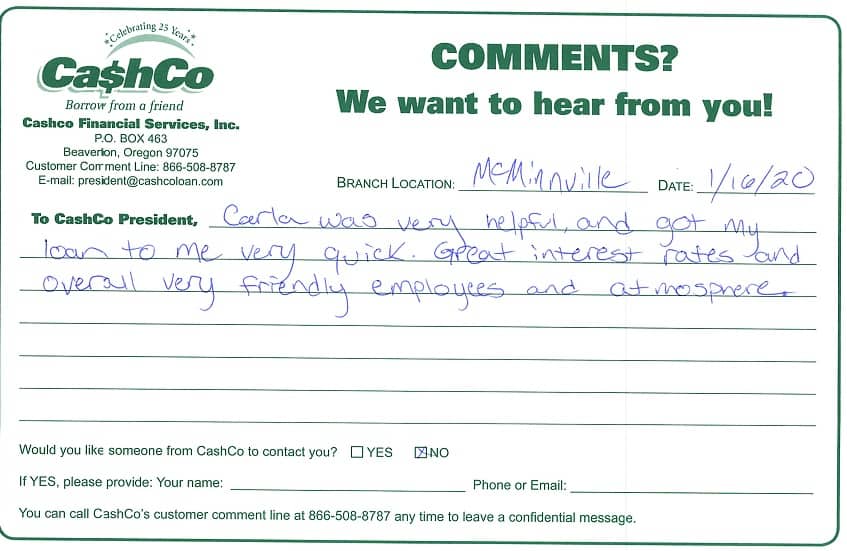 Celebrating 25 Years
Ca$hCo
Borrow from a friend
Cashco Financial Services, Inc.
P.O. BOX 463
Beaverton, Oregon 97075
Customer Comment Line: 866-508-8787
E-mail: president@cashcoloan.com
COMMENTS?
We want to hear from you!
BRANCH LOCATION: McMinnville DATE: 1/16/20
To CashCo President, Carla was very helpful, and got my
loan to me very quick. Great interest rates and
overall very friendly employees and atmosphere.
Would you like someone from CashCo to contact you? ☐ YES ☒ NO
If YES, please provide: Your name: Phone or Email:
You can call CashCo's customer comment line at 866-508-8787 any time to leave a confidential message.